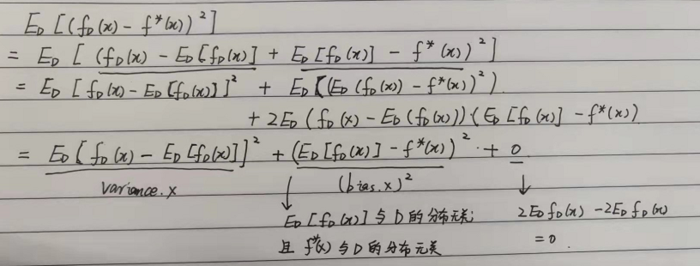 E_D [(f_D(x) - f*(x))²]
= E_D [ (f_D(x) - E_D[f_D(x)] + E_D[f_D(x)] - f*(x))²]
= E_D [ f_D(x) - E_D[f_D(x)]]² + E_D [(E_D(f_D(x) - f*(x))²)
+ 2E_D (f_D(x) - E_D(f_D(x))) (E_D[f_D(x)] - f*(x))
= E_D [ f_D(x) - E_D[f_D(x)]]² + (E_D[f_D(x)] - f*(x))² + 0
variance.x (bias.x)²
↓ ↓
E_D[f_D(x)] 与 D 的分布无关; 2E_D f_D(x) - 2E_D f_D(x)
且 f*(x) 与 D 的分布无关 = 0.